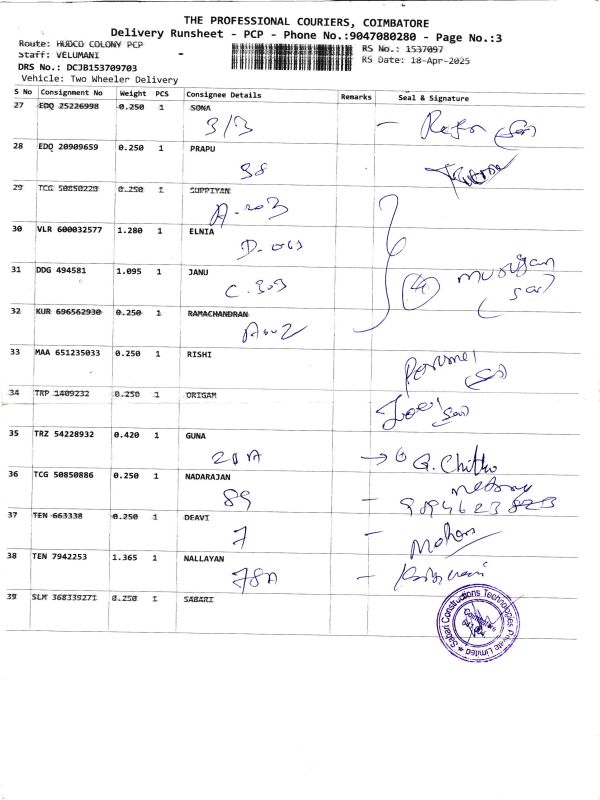 THE PROFESSIONAL COURIERS, COIMBATORE
Delivery Runsheet - PCP - Phone No.:9047080280 - Page No.:3
Route: HUDCO COLONY PCP
Staff: VELUMANI
DRS No.: DCJB153709703
Vehicle: Two Wheeler Delivery
RS No.: 1537097
RS Date: 18-Apr-2025
S No Consignment No Weight PCS Consignee Details Remarks Seal & Signature
27 EDQ 25226998 0.250 1 SONA
3/3
28 EDQ 20909659 0.250 1 PRAPU
38
29 TCG 50850220 0.250 1 SUPPIYAN
A-203
30 VLR 600032577 1.280 1 ELNIA
D-063
31 DDG 494581 1.095 1 JANU
C.303
murugan
32 KUR 696562930 0.250 1 RAMACHANDRAN
A002
33 MAA 651235033 0.250 1 RISHI
34 TRP 1409232 0.250 1 ORIGAM
35 TRZ 54228932 0.420 1 GUNA
20A
G. Chithu
36 TCG 50850886 0.250 1 NADARAJAN
89
37 TEN 663338 0.250 1 DEAVI
7
Mohan
38 TEN 7942253 1.365 1 NALLAYAN
78A
39 SLM 368339271 0.250 1 SABARI
Sabari Constructions Technologies Private Limited
Coimbatore